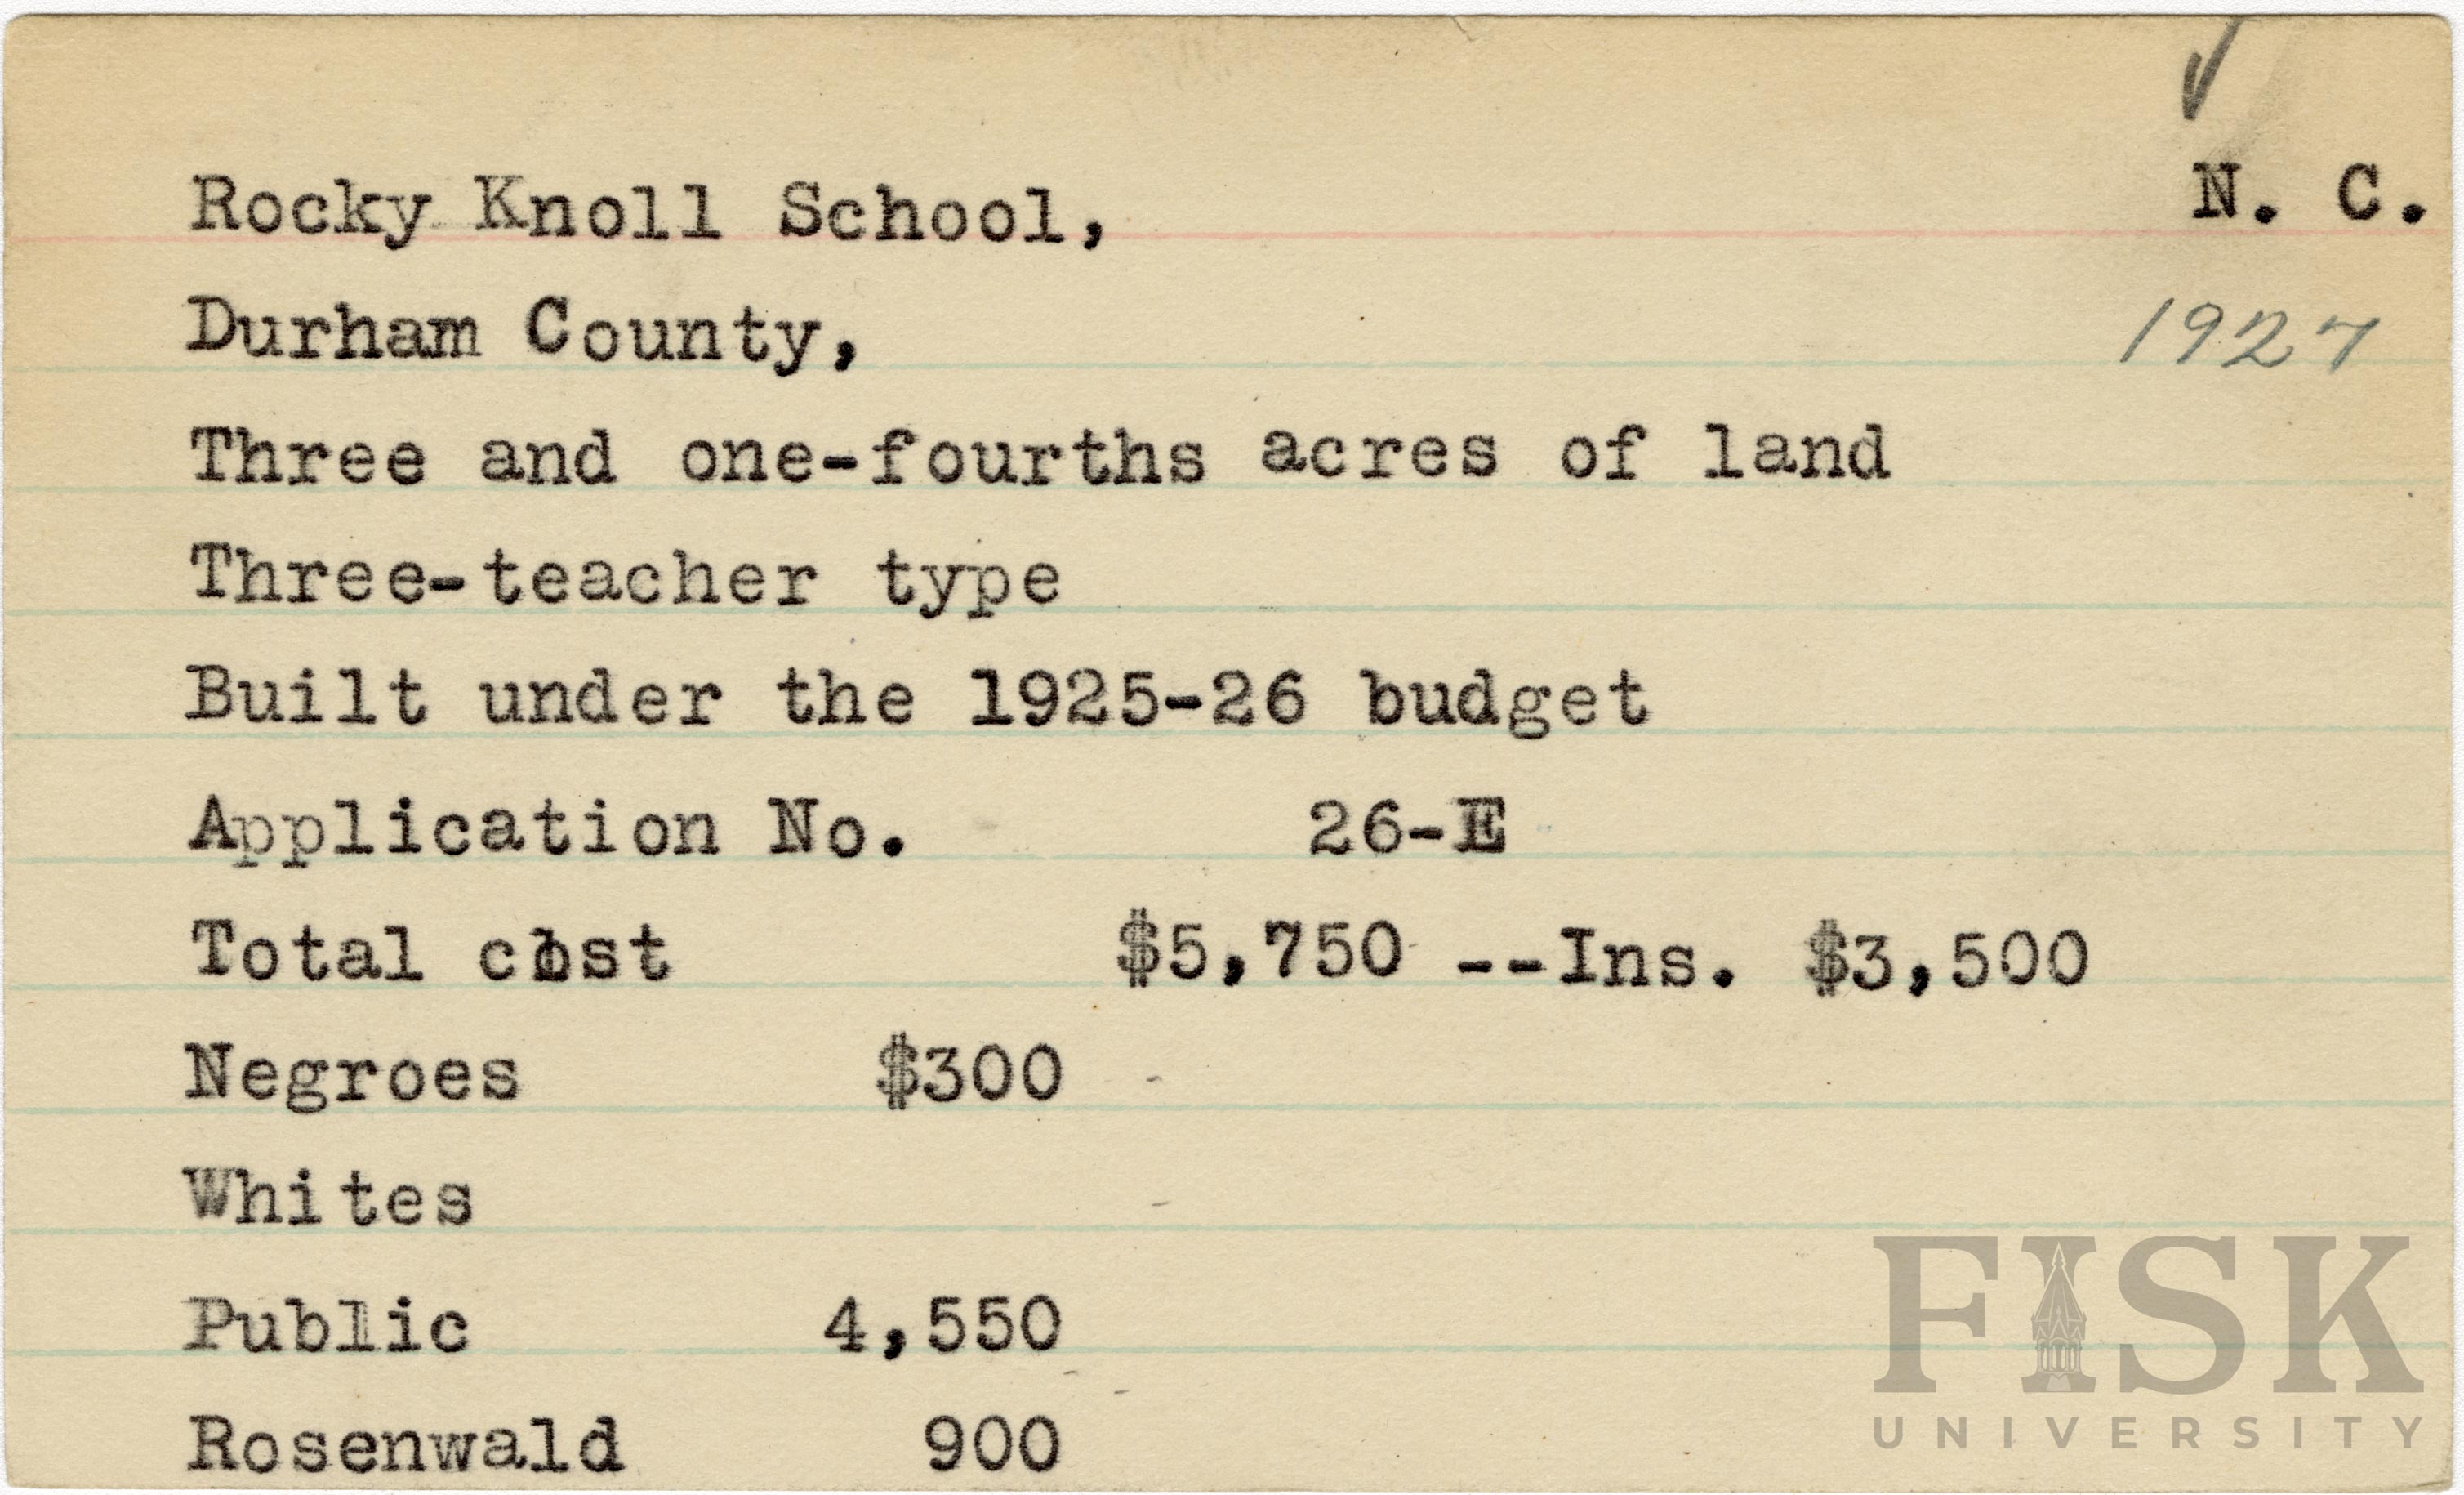 Rocky Knoll School, N. C.
Durham County, 1927
Three and one-fourths acres of land
Three-teacher type
Built under the 1925-26 budget
Application No. 26-E
Total cost $5,750 --Ins. $3,500
Negroes $300
Whites
Public 4,550
Rosenwald 900
FISK
UNIVERSITY